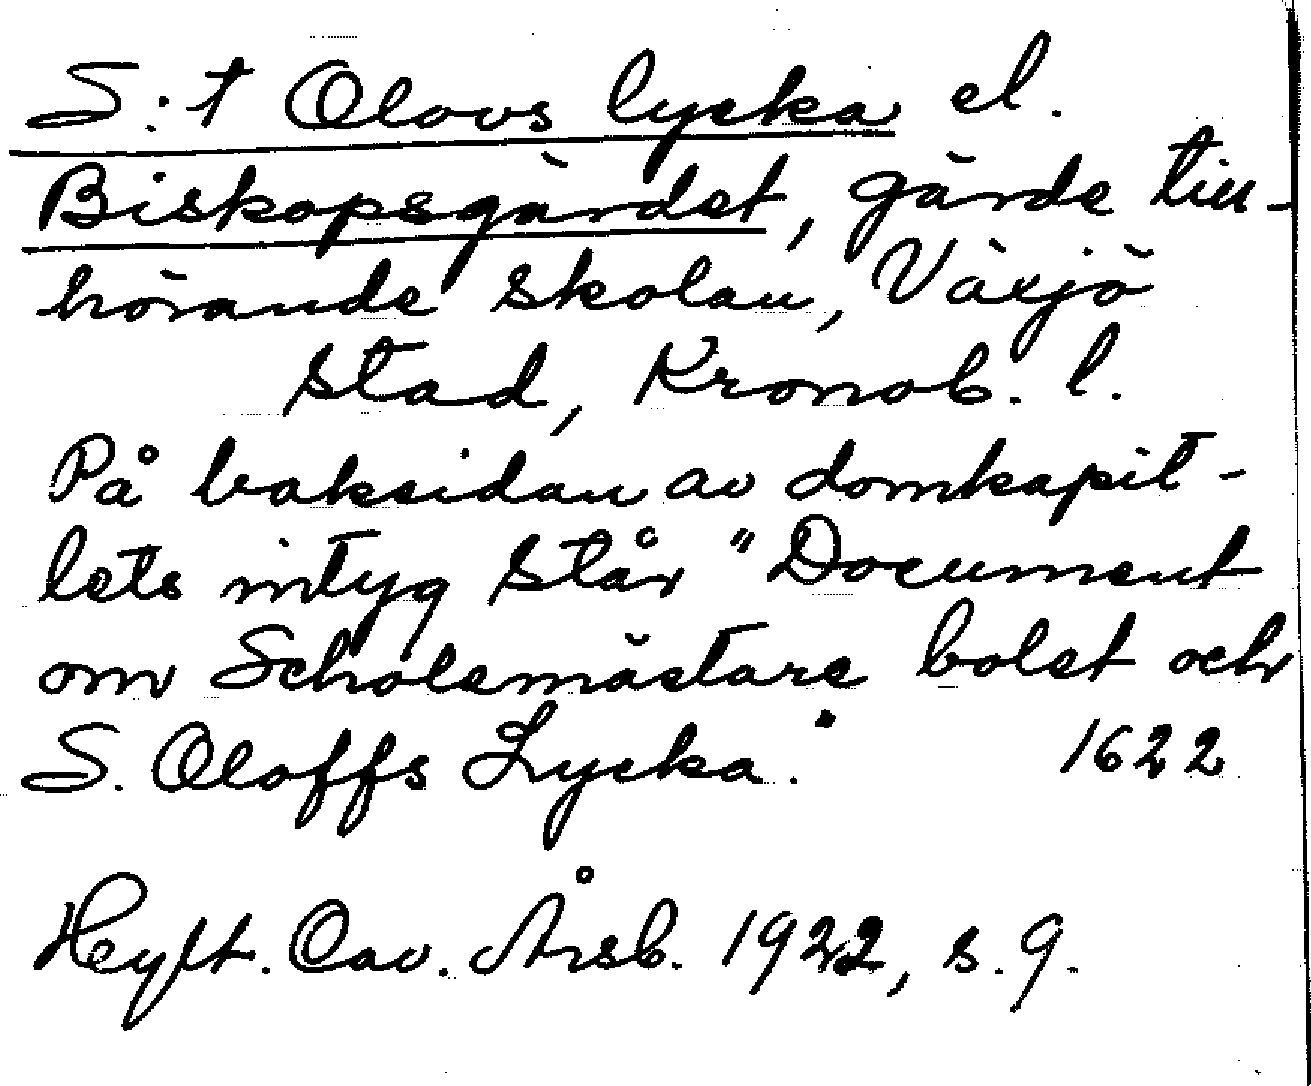 S:t Olovs lycka el.
Biskopsgärdet, gärde till-
hörande skolan, Växjö
stad, Kronob. l.
På baksidan av domkapit-
lets intyg står "Document
om Scholemästare bolet och
S. Oloffs Lycka." 1622
Hylt. Cav. Årsb. 1922, s. 9.